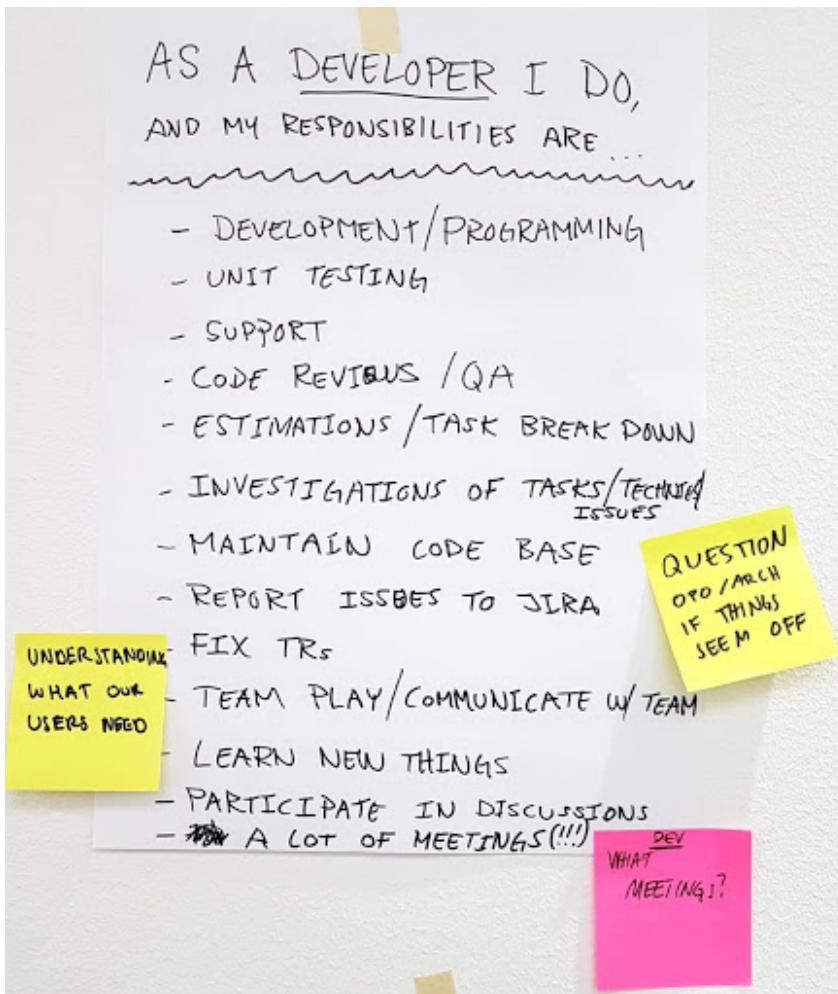 AS A DEVELOPER I DO,
AND MY RESPONSIBILITIES ARE...
- DEVELOPMENT/PROGRAMMING
- UNIT TESTING
- SUPPORT
- CODE REVIEWS / QA
- ESTIMATIONS / TASK BREAK DOWN
- INVESTIGATIONS OF TASKS/TECHNICAL
ISSUES
- MAINTAIN CODE BASE
- REPORT ISSUES TO JIRA
- FIX TRs
- TEAM PLAY/COMMUNICATE W/ TEAM
- LEARN NEW THINGS
- PARTICIPATE IN DISCUSSIONS
- A LOT OF MEETINGS(!!!)
QUESTION
OPO/ARCH
IF THINGS
SEEM OFF
UNDERSTANDING
WHAT OUR
USERS NEED
DEV
WHAT
MEETINGS?